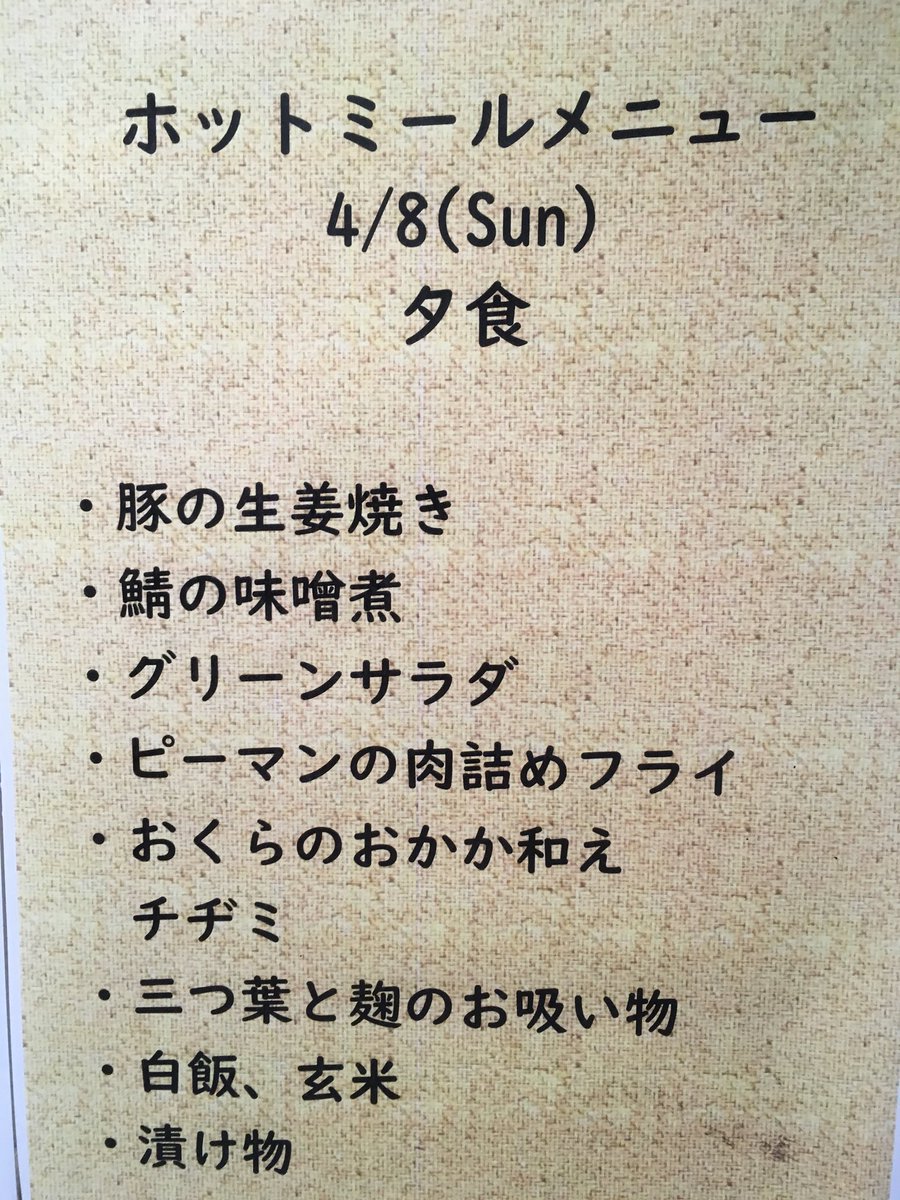 ホットミールメニュー
4/8(Sun)
夕食
・豚の生姜焼き
・鯖の味噌煮
・グリーンサラダ
・ピーマンの肉詰めフライ
・おくらのおかか和え
チヂミ
・三つ葉と麹のお吸い物
・白飯、玄米
・漬け物